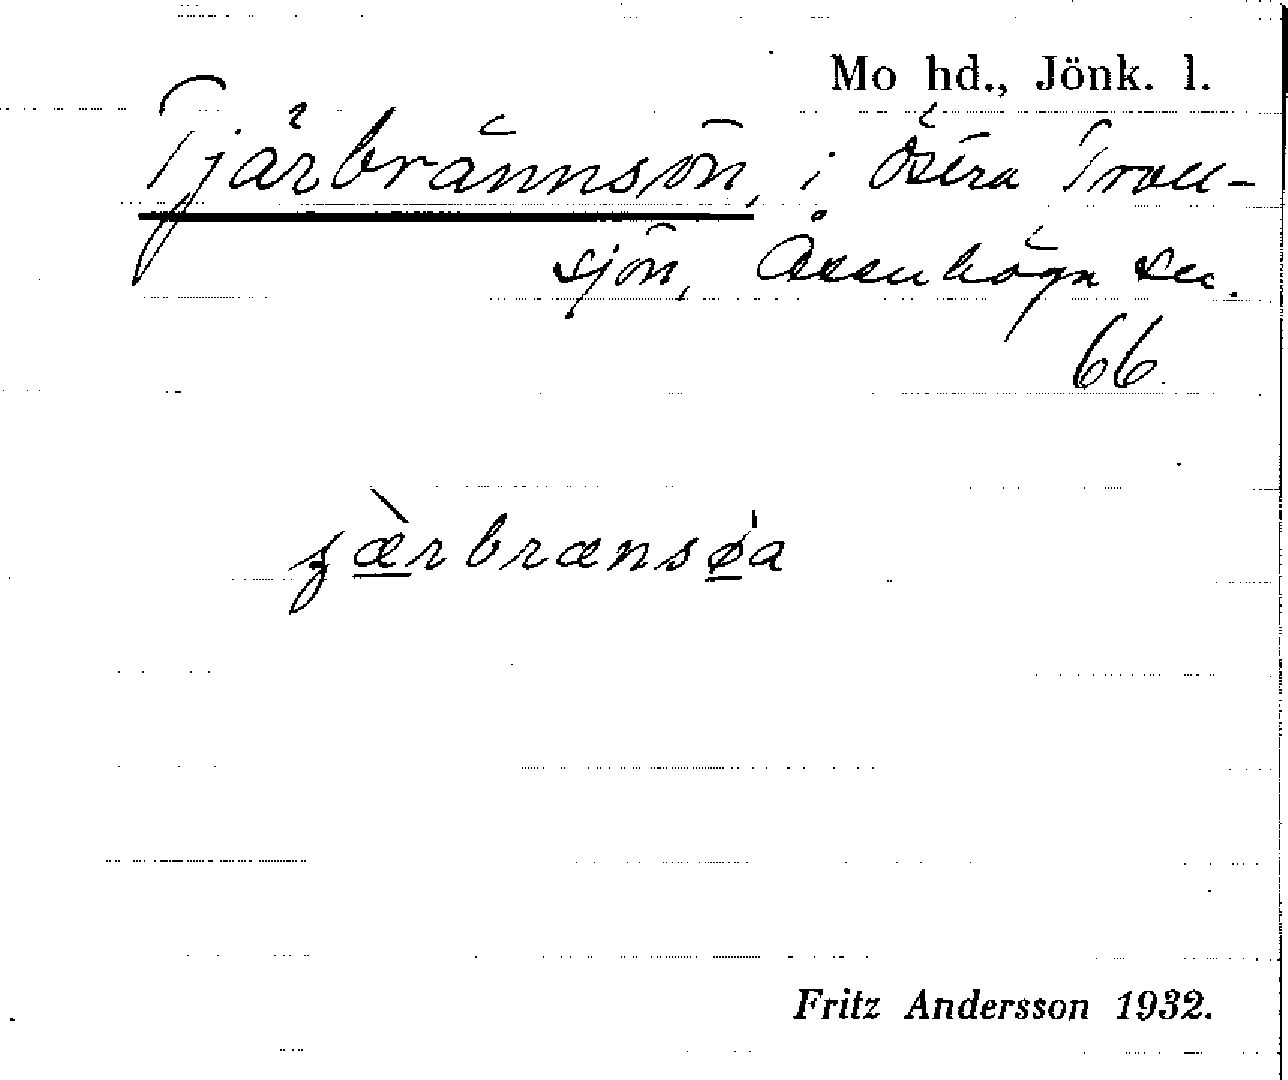 Mo hd., Jönk. l.
Tjärbrännsön, i Östra Troll-
sjön, Åsenhöga sn.
66.
ʒæ̀rbrænsø̍a
Fritz Andersson 1932.